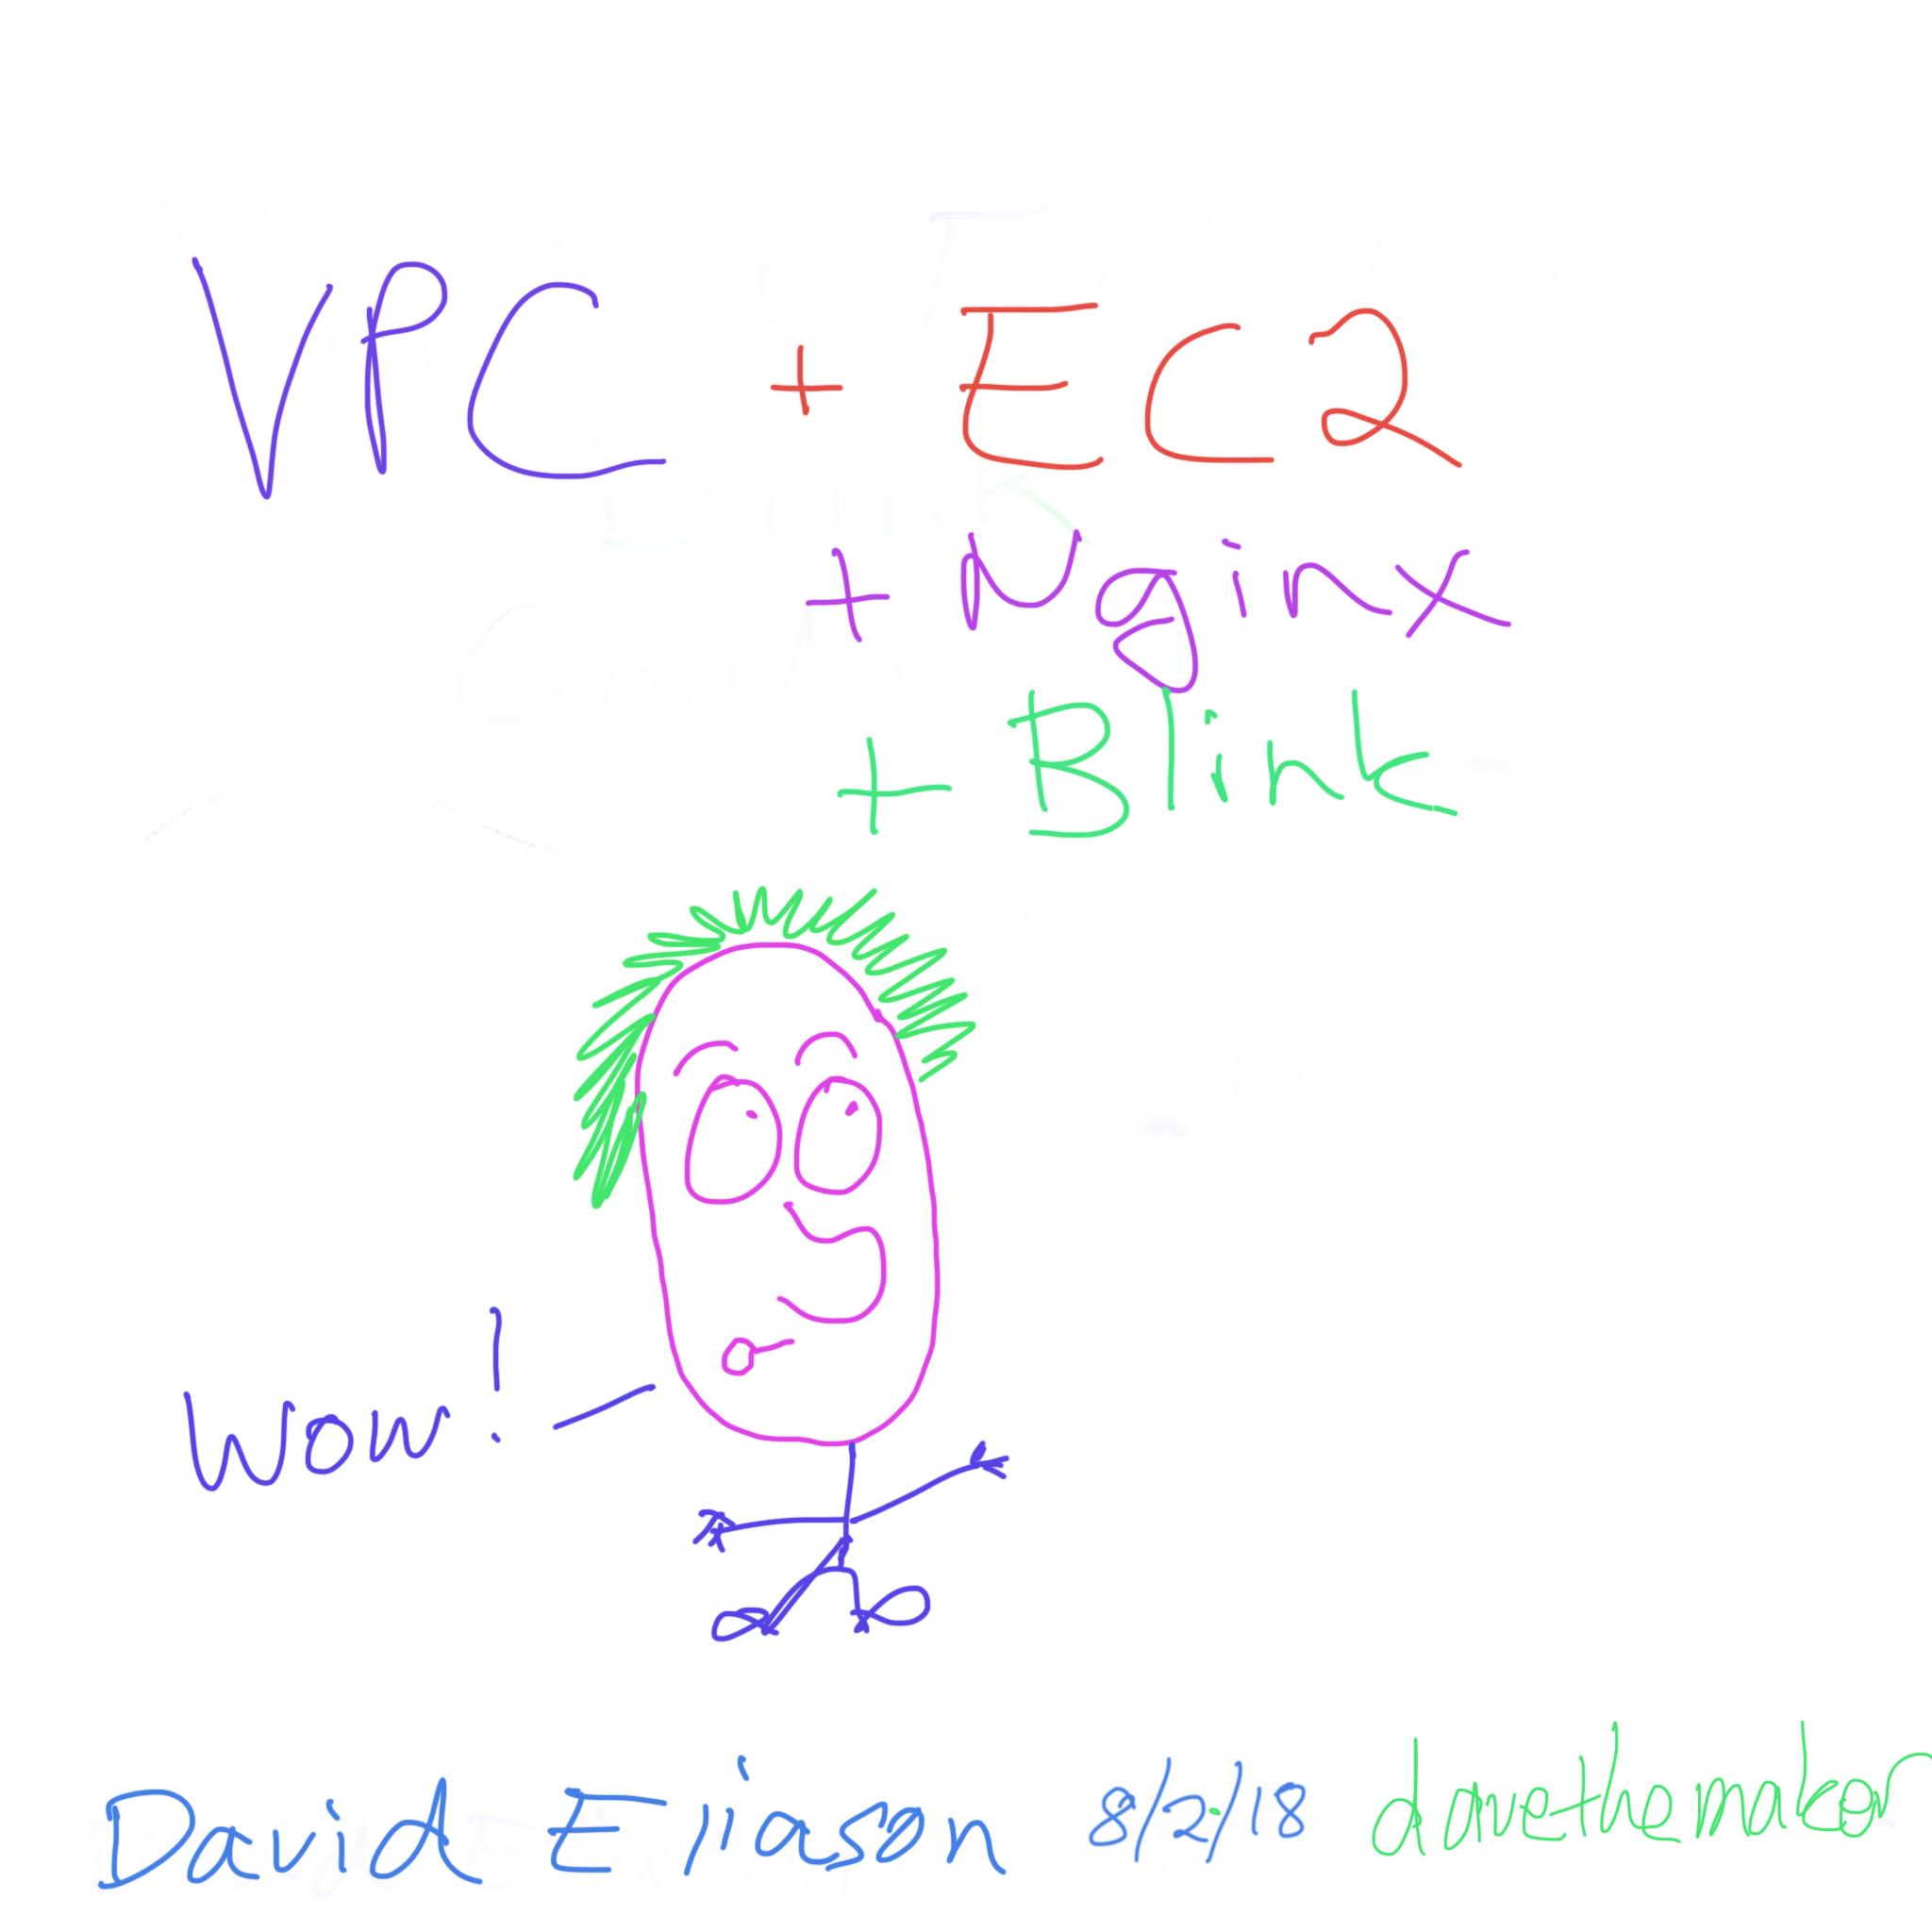 VPC + EC2
+ Nginx
+ Blink
Wow!
David Eliason 8/2/18 dmethemaker